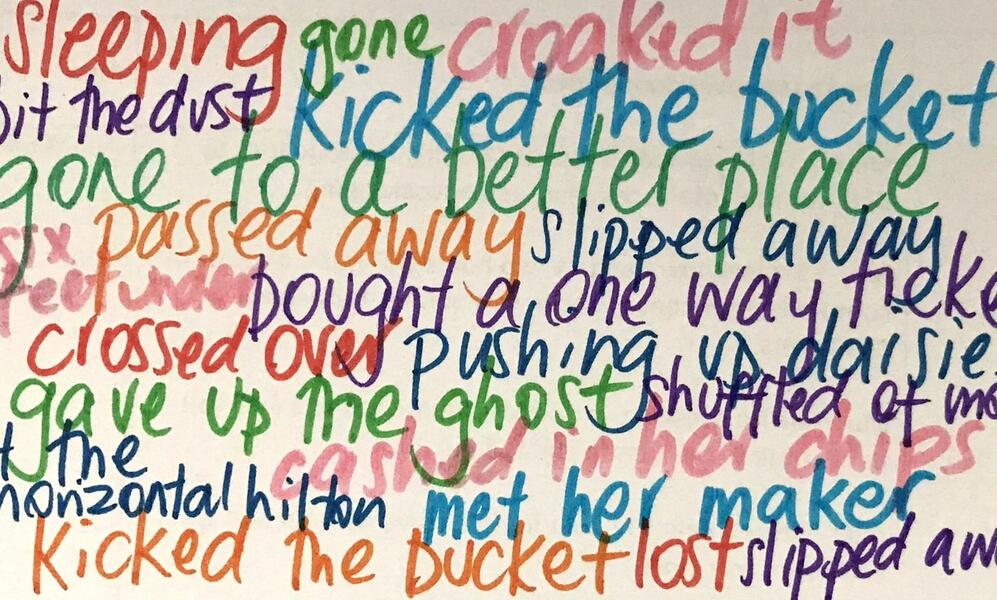 sleeping gone croaked it
bit the dust kicked the bucket
gone to a better place
six passed away slipped away
feet under bought a one way ticke
crossed over pushing up daisie
gave up the ghost shuffled of mo
t the cashed in her chips
horizontal hilton met her maker
kicked the bucket lost slipped aw